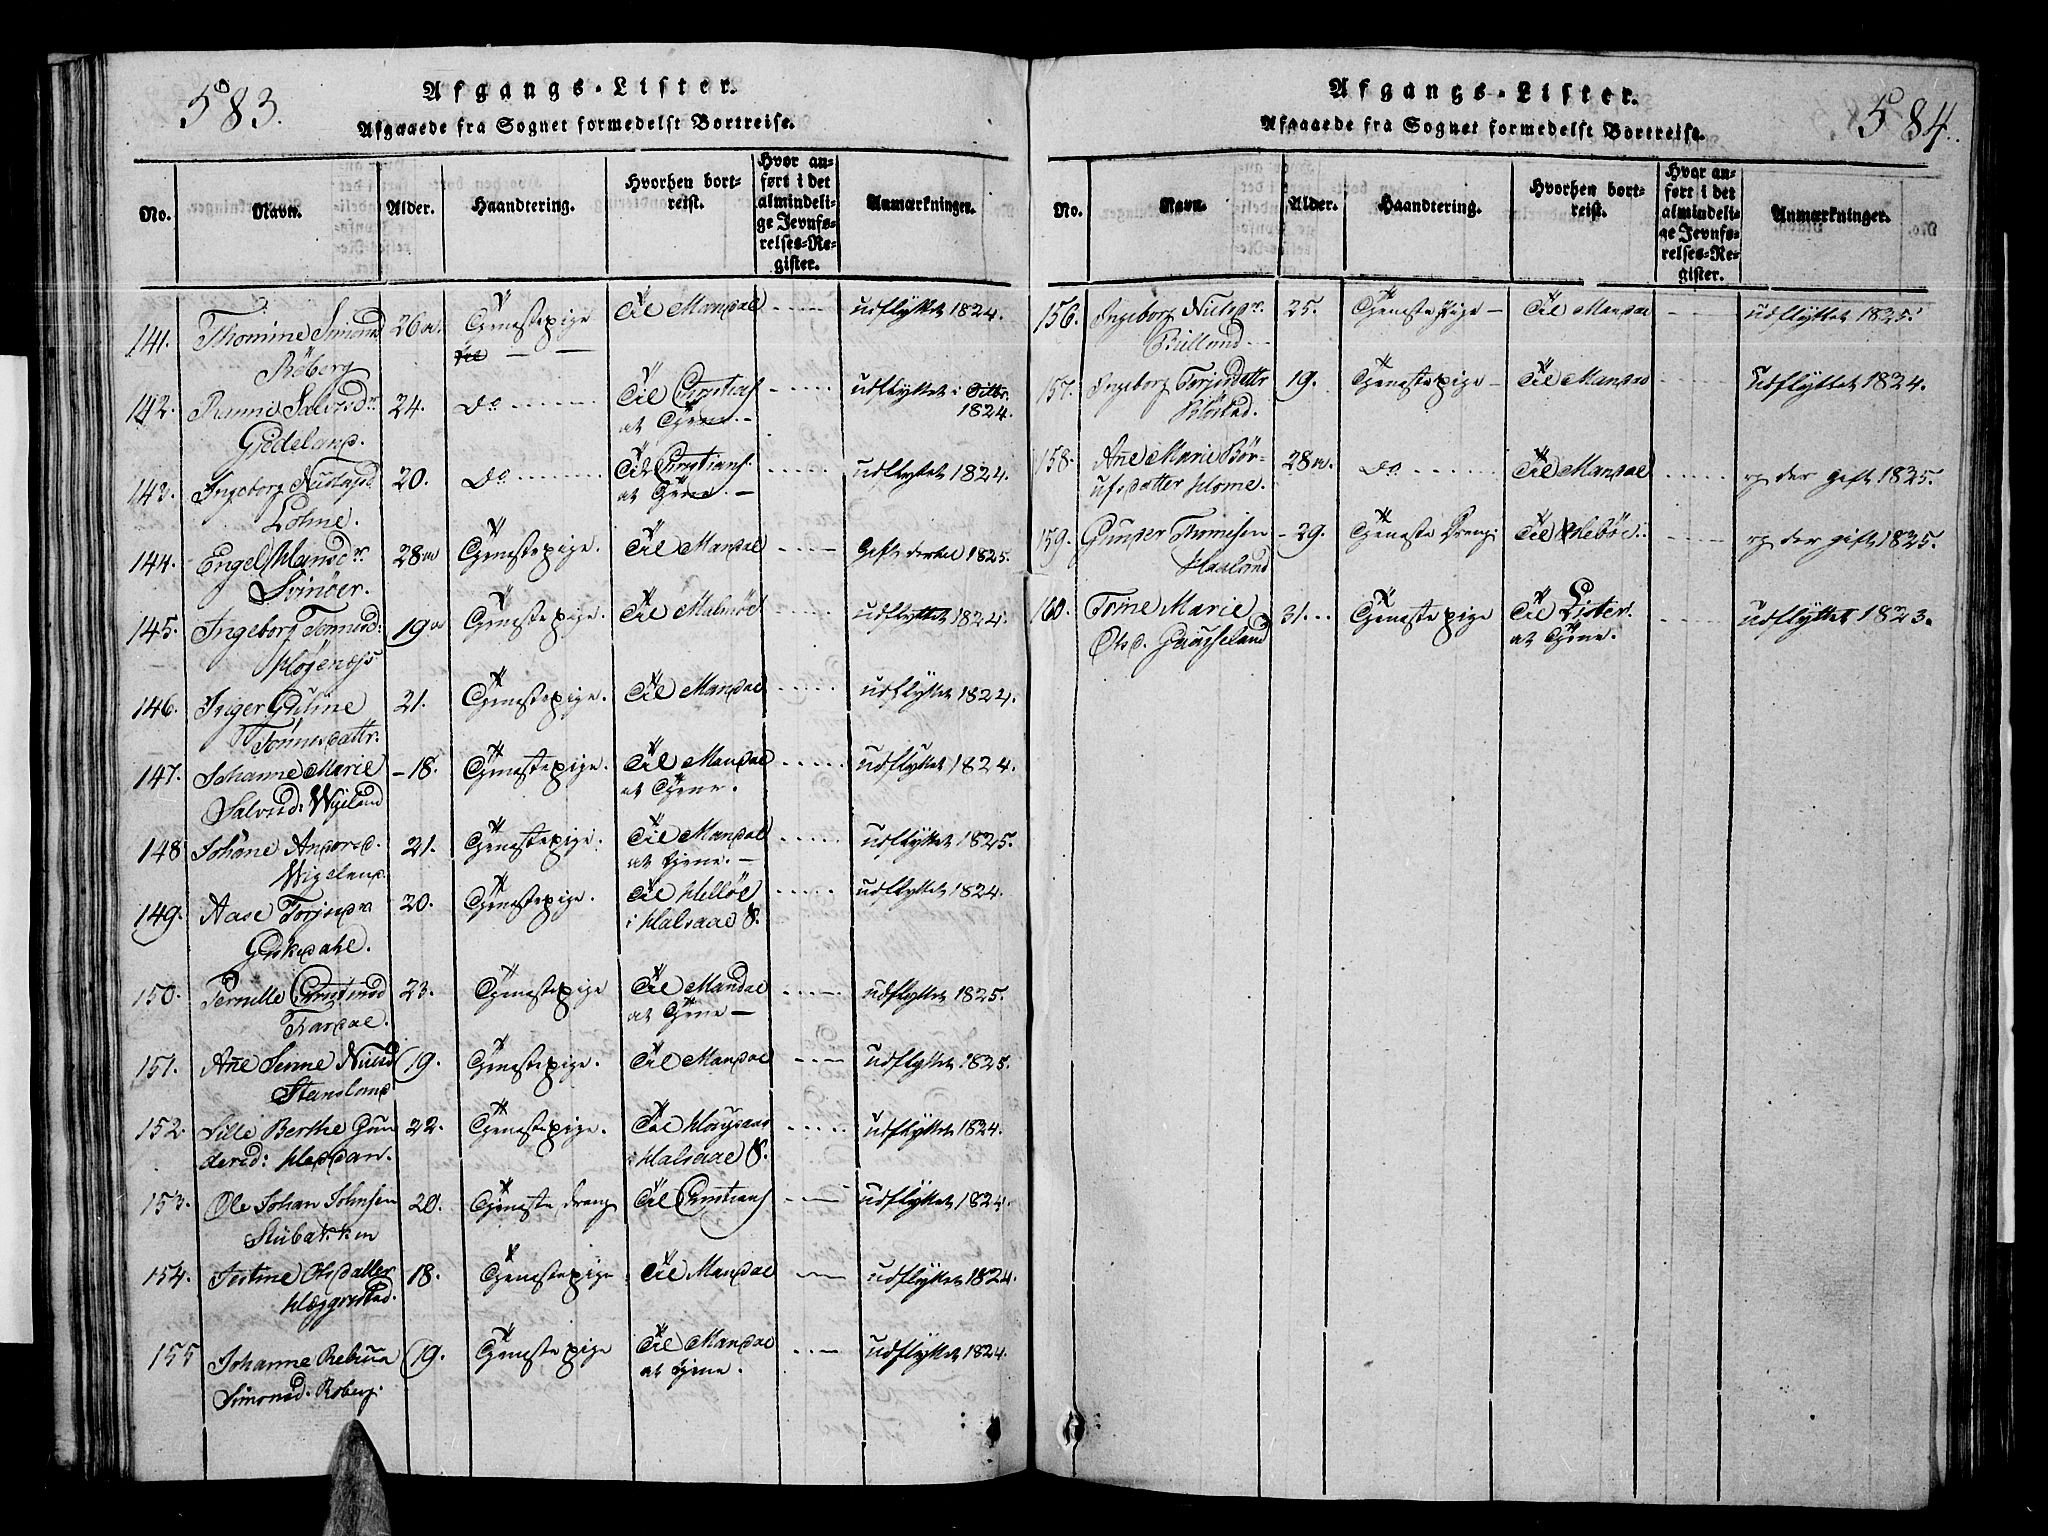 583.
Afgangs-Lister.
Afgaaede fra Sognet formedelst Bortreise.
No. Navn. Alder. Haandtering. Hvorhen bortreist. Hvor anført i det almindelige Jevnførelses-Register. Anmærkninger.
141. Thomine Simonsd 26 Tjenestepige Til Mandal udflyttet 1824.
Röberg
142. Salvesdr 24. Do Til Christians udflyttet i Octbr. 1824.
Gideland. at Tjene.
143. Ingeborg 20. Do Til Christians. udflyttet 1824.
Lohne. at Tjene.
144. Engel Hansdr 28 Tjenestepige. Til Mandal Gift dertil 1825.
Svinöer.
145. Ingeborg Tönnesd: 19 Tjenestepige. Til Malmöe. udflyttet 1824.
Högenæs
146. Inger Guline 21. Tjenestepige. Til Mandal udflyttet 1824.
Tönnesdattr.
147. Johanne Marie 18. Tjenestepige. Til Mandal udflyttet 1824.
Salvesd: Wigeland at Tjene.
148 Johane Andersd. 21. Tjenestepige. Til Mandal udflyttet 1825.
Wigeland. at tjene.
149. Aase Torjusdr 20. Tjenestepige. Til udflyttet 1824.
Giskedahl. i Halsaae S.
150. Pernille Christensd 23. Tjenestepige Til Mandal udflyttet 1825.
Tardal. at Tjene
151. Ane Senne Nielsd 19. Tjenestepige. Til Mandal udflyttet 1825.
Stensland
152. Sille Berthe Gun 22. Tjenestepige. Til udflyttet 1824.
dersd: Heddan. i Halsaae S.
153. Ole Johan Johnsen 20. Tjeneste dreng Til Christians udflyttet 1824.
Stubakken
154. Jertine Olsdatter 18. Tjenestepige Til Mandal udflyttet 1824.
Hæggestad.
155 Johanne Rebecca 19. Tjeneste pige Til Mandal udflyttet 1824.
Simonsd: Roberg. at tjene.
584.
Afgangs-Lister.
Afgaaede fra Sognet formedelst Bortreise.
No. Navn. Alder. Haandtering. Hvorhen bortreist. Hvor anført i det almindelige Jevnførelses-Register. Anmærkninger.
156. Ingeborg Nielsdr. 25. Tjeneste Pige Til Mandal udflyttet 1825.
Billand
157. Ingeborg Torjusdattr 19. Tjenestepige Til Mandal Udflyttet 1824.
158. Ane Marie Bör- 28 do Til Mandal og der gift 1825.
ufsdatter Home.
159. Gunder Thomesen 29. Tjeneste Dreng Til Heböe. og der gift 1825.
Haaland
160. Tome Marie 31 Tjeneste pige Til Lister. udflyttet 1823.
Olsd. at Tjene.